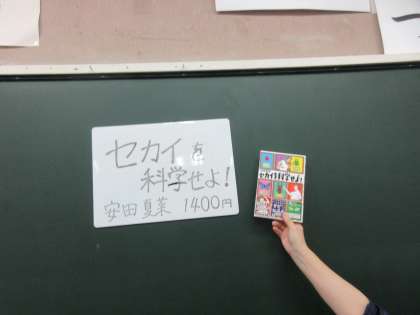 セカイを
科学せよ！
安田夏菜 1400円
セカイを科学せよ！